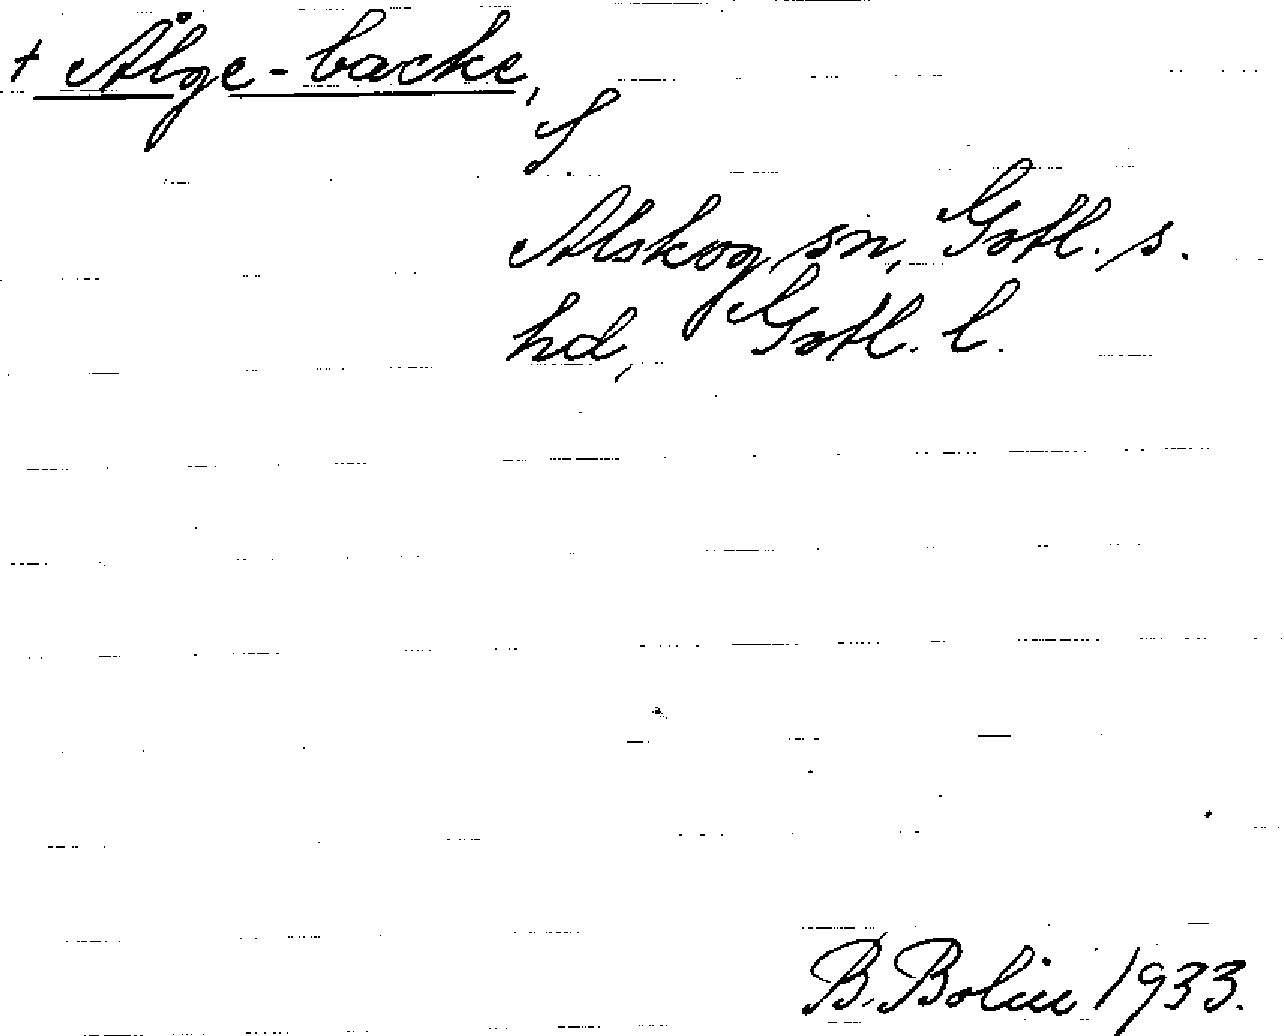 + Ålge-backe,
S.
Alskog sn, Gotl. s.
hd, Gotl. l.
B. Bolin 1933.